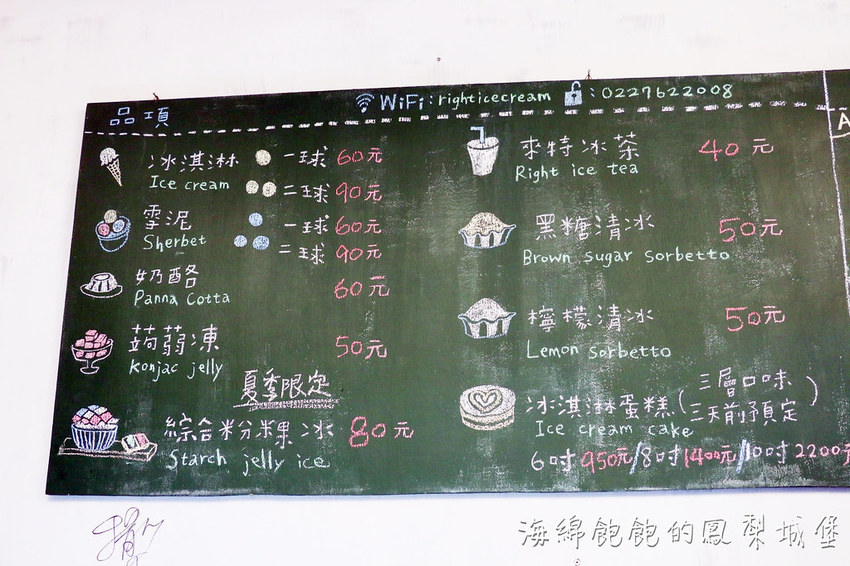 品項
WiFi:righticecream :0227622008
冰淇淋 一球 60元
Ice cream 二球 90元
雪泥 一球 60元
Sherbet 二球 90元
奶酪 60元
Panna Cotta
蒟蒻凍 50元
Konjac jelly
夏季限定
綜合粉粿冰 80元
Starch jelly ice
來特冰茶 40元
Right ice tea
黑糖清冰 50元
Brown sugar sorbetto
檸檬清冰 50元
Lemon sorbetto
冰淇淋蛋糕(三層口味
三天前預定)
Ice cream cake
6吋950元/8吋1400元/10吋2200元
A
海綿飽飽的鳳梨城堡